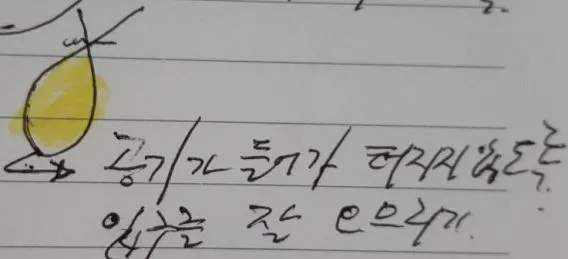 공기가 들어가 터지지 않도록
입구를 잘 오므리기.